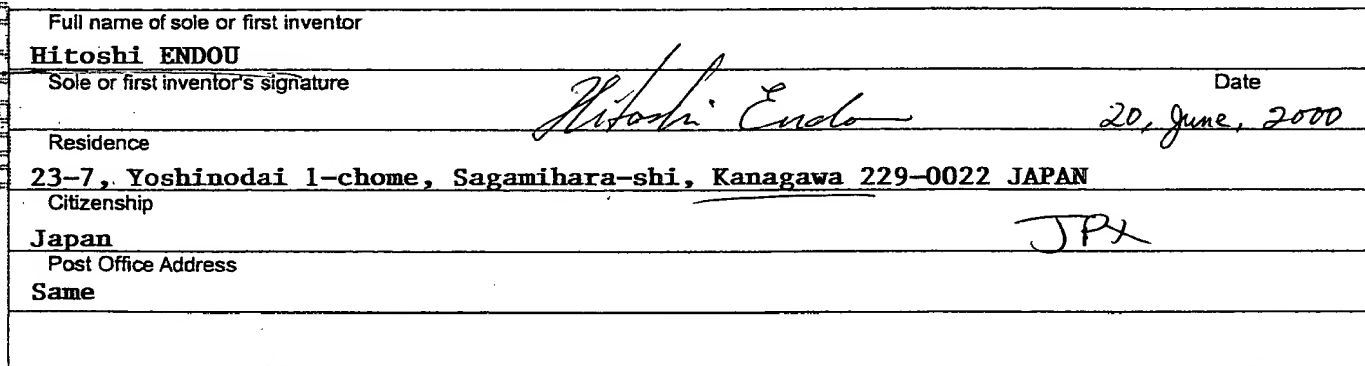 Full name of sole or first inventor
Hitoshi ENDOU
Sole or first inventor's signature
Date
Hitoshi Endo
20, June, 2000
Residence
23-7, Yoshinodai 1-chome, Sagamihara-shi, Kanagawa 229-0022 JAPAN
Citizenship
Japan
JPX
Post Office Address
Same